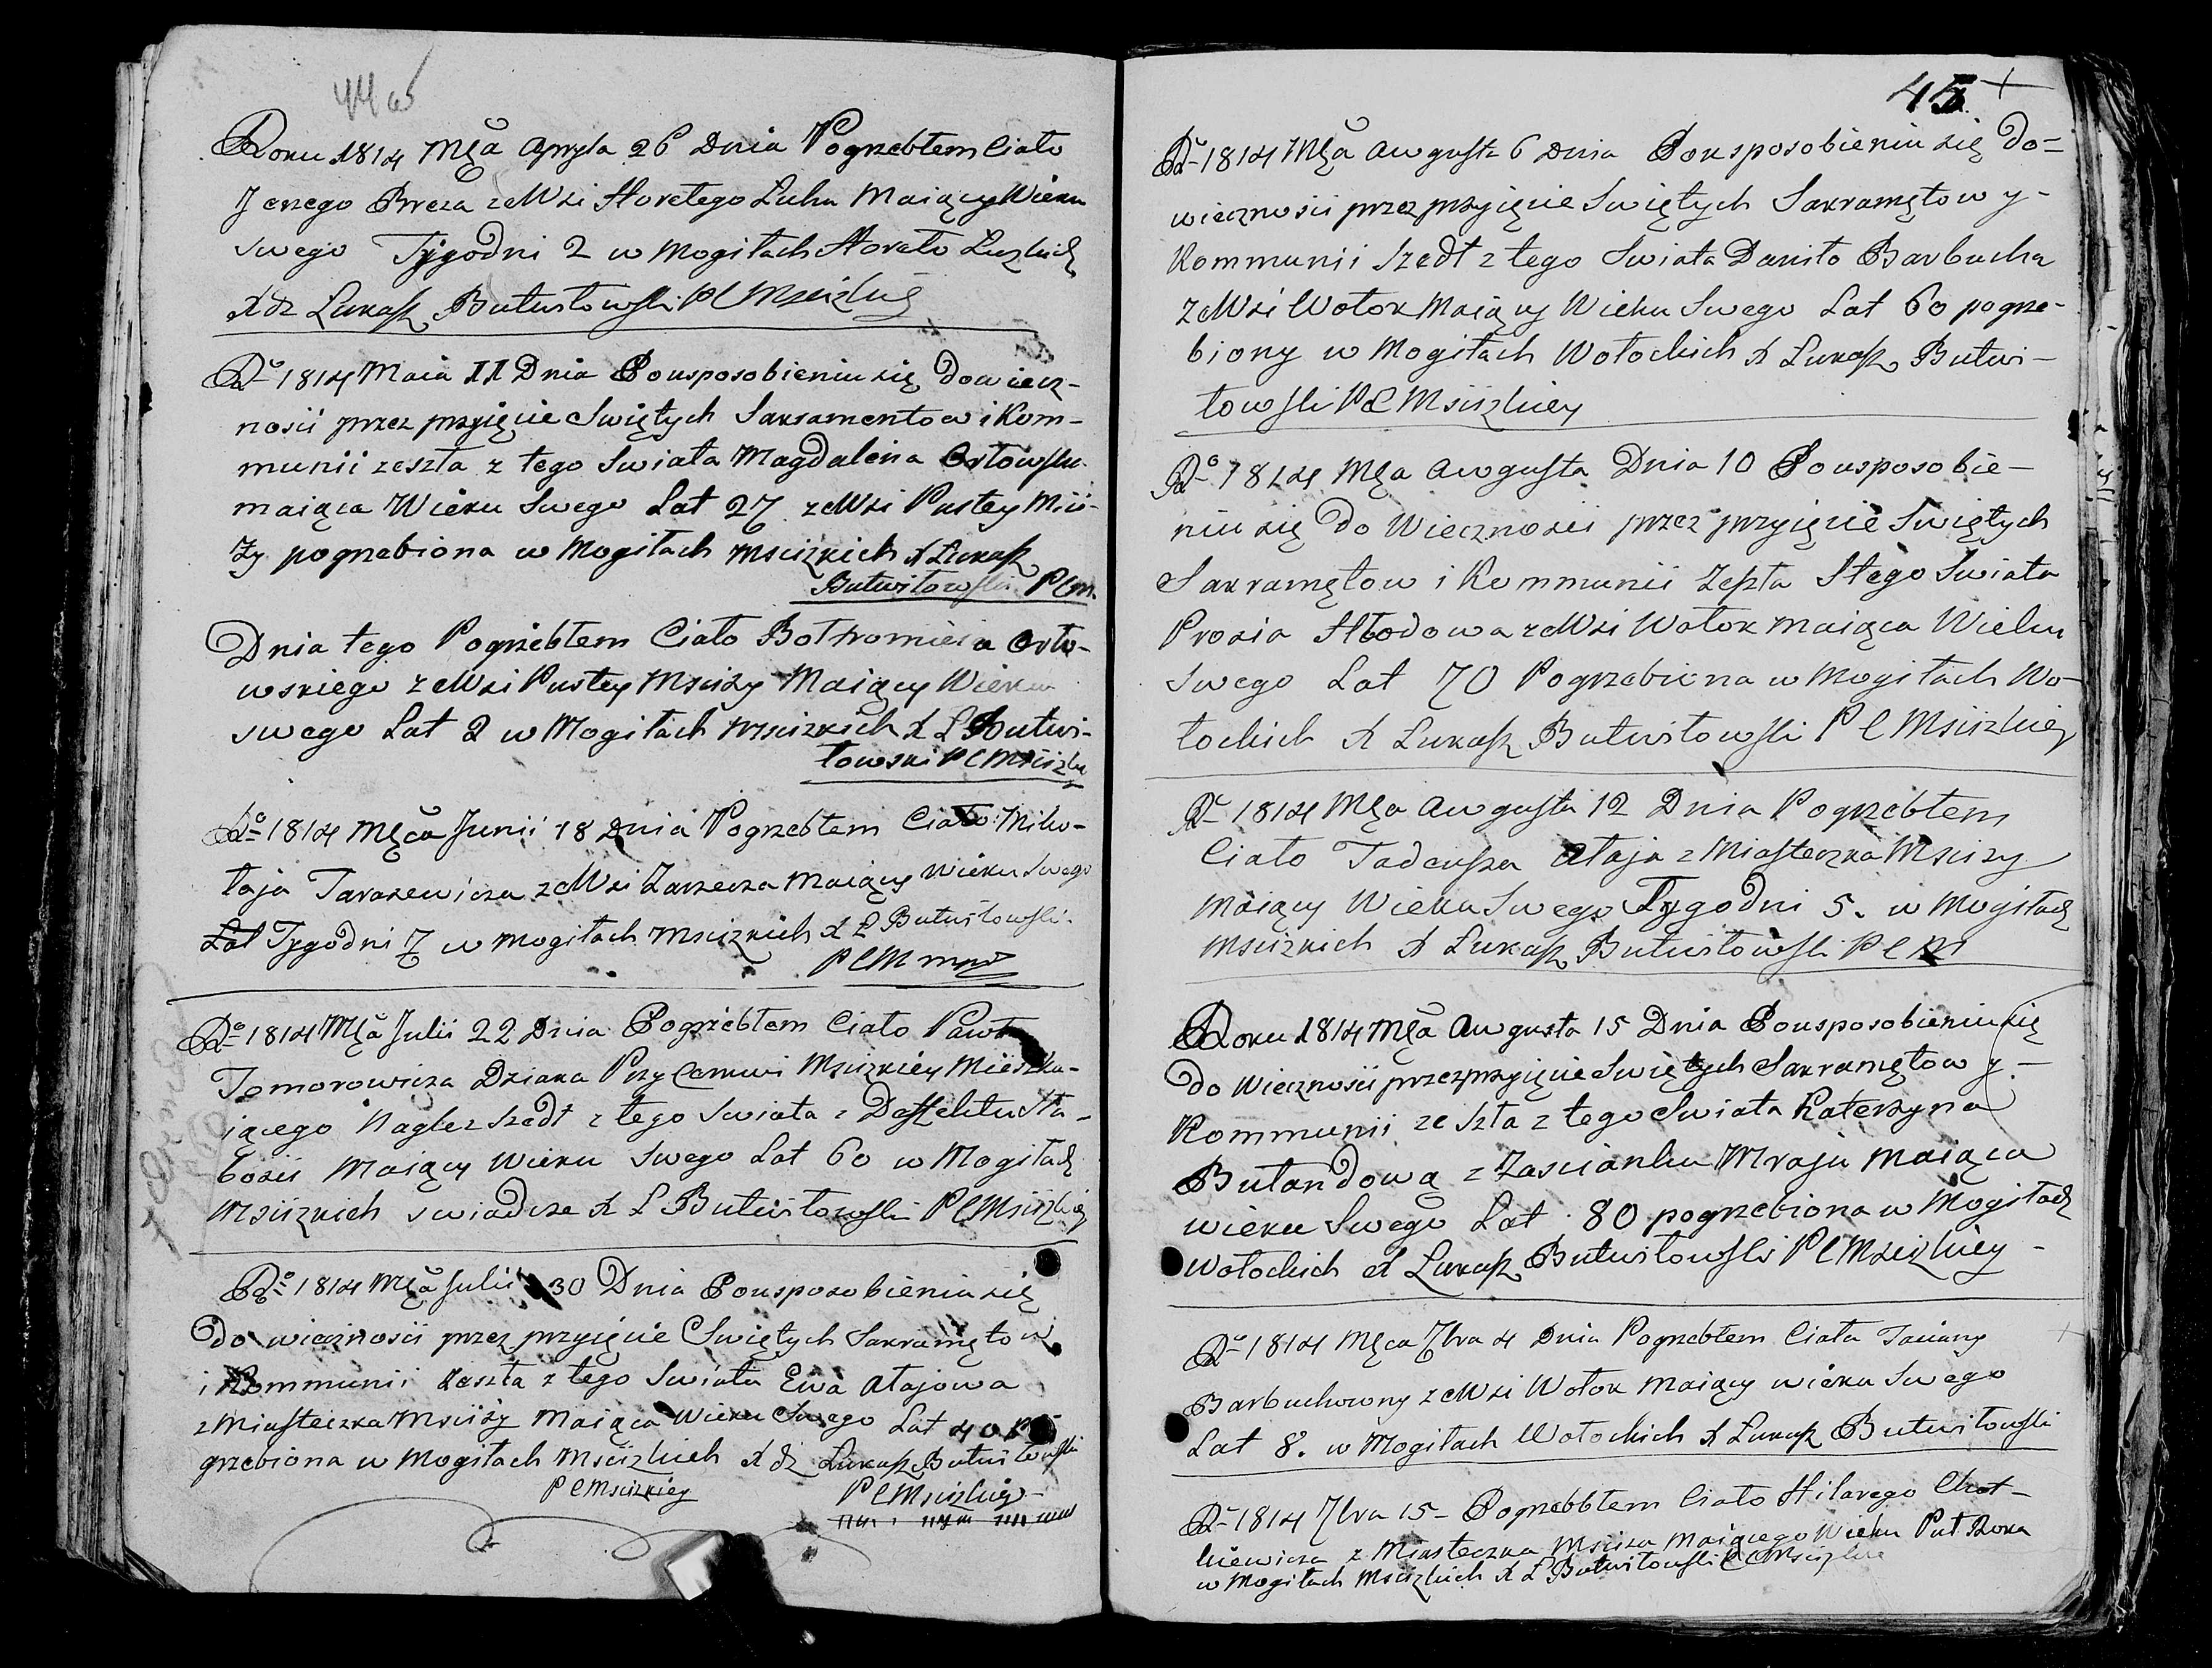 44 об
Roku 1814 Mca Apryla 26 Dnia Pogrzebłem Ciało
Jerzego Breza ze Wsi Horełego Łuhu Maiący Wieku
swego Tygodni 2 w Mogiłach Horeło Łuzkich
X dz Łukasz Butwiłowski P C Mscizkiey
Ro 1814 Maia 11 Dnia Po usposobieniu się do wiecz-
nosci przez przyięcie Swiętych Sakramentow i Kom-
munii zeszła z tego Swiata Magdalena Orłowska
maiąca Wieku Swego Lat 27 ze Wsi Pustey Msci-
ży pogrzebiona w Mogiłach Mscizkich X Łukasz
Butwiłowski P C M.
Dnia tego Pogrzebłem Ciało Bołtromieia Orło-
wskiego ze Wsi Pustey Msciży Maiący Wieku
swego Lat 2 w Mogiłach Mscizkich X Ł Butwi-
łowski P C Mscizki
Ro 1814 Męca Junii 18 Dnia Pogrzebłem Ciało Miko-
łaja Tarasewicza ze Wsi Zarzecza Maiący Wieku Swego
Lat Tygodni 7 w Mogiłach Mscizkich X Ł Butwiłowski
P C M mpr
Ro 1814 Mca Julii 22 Dnia Pogrzebłem Ciało Pawła
Tomorowicza Dziaka Przy Cerkwi Mscizkiey Mieszka-
iącego Nagle z szedł z tego Swiata z Defektu Sła-
bosci Maiący Wieku Swego Lat 60 w Mogiłach
Mscizkich swiadcze X Ł Butwiłowski P C Mscizkiey
Ro 1814 Mca Julii 30 Dnia Po usposobieniu się
do wiecznosci przez przyięcie Swiętych Sakramętow
i Kommunii zeszła z tego Swiata Ewa Ałajowa
z Miasteczka Msciży Maiąca Wieku Swego Lat 40 Po
grzebiona w Mogiłach Mscizkich X dz Łukasz Butwiłowski
P C Mscizkiey P C Mscizkiey
45
Ro 1814 Mca Augusta 6 Dnia Po usposobieniu się do=
wiecznosci przez przyięcie Swiętych Sakramętow y-
Kommunii Szedł z tego Swiata Daniło Barbucha
ze Wsi Wołok Maiący Wieku Swego Lat 60 pogrze-
biony w Mogiłach Wołockich X Łukasz Butwi-
łowski P C Mscizkiey
Ro 1814 Mca Augusta Dnia 10 Po usposobie-
niu się do Wiecznosci przez przyięcie Swiętych
Sakramętow i Kommunii Zeszła S tego Swiata
Prosia Hłodowa ze Wsi Wołok maiąca Wieku
Swego Lat 70 Pogrzebiona w Mogiłach Wo-
łockich X Łukasz Butwiłowski P C Mscizkiey
Ro 1814 Mca Augusta 12 Dnia Pogrzebłem
Ciało Tadeusza Ałaja z Miasteczka Msciży
Maiący Wieku Swego Tygodni 5. w Mogiłach
Mscizkich X Łukasz Butwiłowski P C M
Roku 1814 Mca Augusta 15 Dnia Po usposobieniu się
do Wiecznosci przez przyięcie Swiętych Sakramętow y-
Kommunii ze szła z tego Swiata Katerzyna
Bułandową z Zascianku Mraju Maiąca
wieku Swego Lat 80 pogrzebiona w Mogiłach
Wołockich X Łukasz Butwiłowski P C Mscizkiey -
Ro 1814 Męca 7bra 4 Dnia Pogrzebłem Ciała Taciany
Barbuchowny ze Wsi Wołok Maiący wieku Swego
Lat 8. w Mogiłach Wołockich X Łukasz Butwiłowski
Ro 1814 7bra 15- Pogrzebbłem Ciało Hilarego Chot-
kiewicza z Miasteczka Msciża Maiącego Wieku Puł Roka
w Mogiłach Mscizkich X Ł Butwiłowski P C Mscizkie